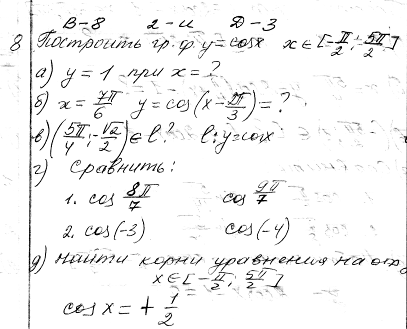 В-8 2-и Д-3
8 Построить гр. ф. y = cos x x ∈ [-π/2; 5π/2]
а) y = 1 при x = ?
б) x = 7π/6 y = cos(x - 2π/3) = ?
в) (5π/4; -√2/2) ∈ l? l: y = cos x
г) Сравнить:
1. cos 8π/7 cos 9π/7
2. cos(-3) cos(-4)
д) найти корни уравнения на отр.
x ∈ [-π/2; 5π/2]
cos x = + 1/2